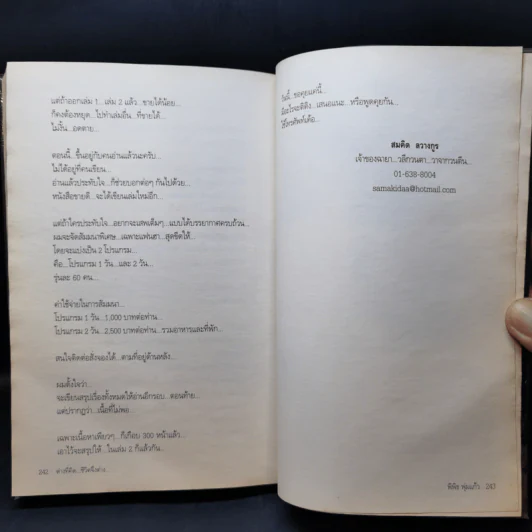 แต่ถ้าออกเล่ม 1...เล่ม 2 แล้ว...ขายได้น้อย...
ก็คงต้องหยุด...ไปทำเล่มอื่น...ที่ขายได้...
ไม่งั้น...อดตาย...
ตอนนี้...ขึ้นอยู่กับคนอ่านแล้วนะครับ...
ไม่ได้อยู่ที่คนเขียน...
อ่านแล้วประทับใจ...ก็ช่วยบอกต่อๆ กันไปด้วย...
หนังสือขายดี...จะได้เขียนเล่มใหม่อีก...
แต่ถ้าใครประทับใจ...อยากจะเสพเต็มๆ...แบบได้บรรยากาศครบถ้วน...
ผมจะจัดสัมมนาพิเศษ...เฉพาะแฟนฮา...สุดขีดให้...
โดยจะแบ่งเป็น 2 โปรแกรม...
คือ...โปรแกรม 1 วัน...และ 2 วัน...
รุ่นละ 60 คน...
ค่าใช้จ่ายในการสัมมนา...
โปรแกรม 1 วัน...1,000 บาทต่อท่าน...
โปรแกรม 2 วัน...2,500 บาทต่อท่าน...รวมอาหารและที่พัก...
สนใจติดต่อสั่งจองได้...ตามที่อยู่ด้านหลัง...
ผมตั้งใจว่า...
จะเขียนสรุปเรื่องทั้งหมดให้อ่านอีกรอบ...ตอนท้าย...
แต่ปรากฏว่า...เนื้อที่ไม่พอ...
เฉพาะเนื้อหาเพียวๆ...ก็เกือบ 300 หน้าแล้ว...
เอาไว้จะสรุปให้...ในเล่ม 2 ก็แล้วกัน...
242 ต่างที่คิด...ชีวิตจึงต่าง...
วันนี้...ขอคุยแค่นี้...
มีอะไรจะติติง...เสนอแนะ...หรือพูดคุยกัน...
สมคิด ลวางกูร
เจ้าของฉายา...วลีกวนตา...วาจากวนตีน...
01-638-8004
samakidaa@hotmail.com
พิพิธ พุ่มแก้ว 243